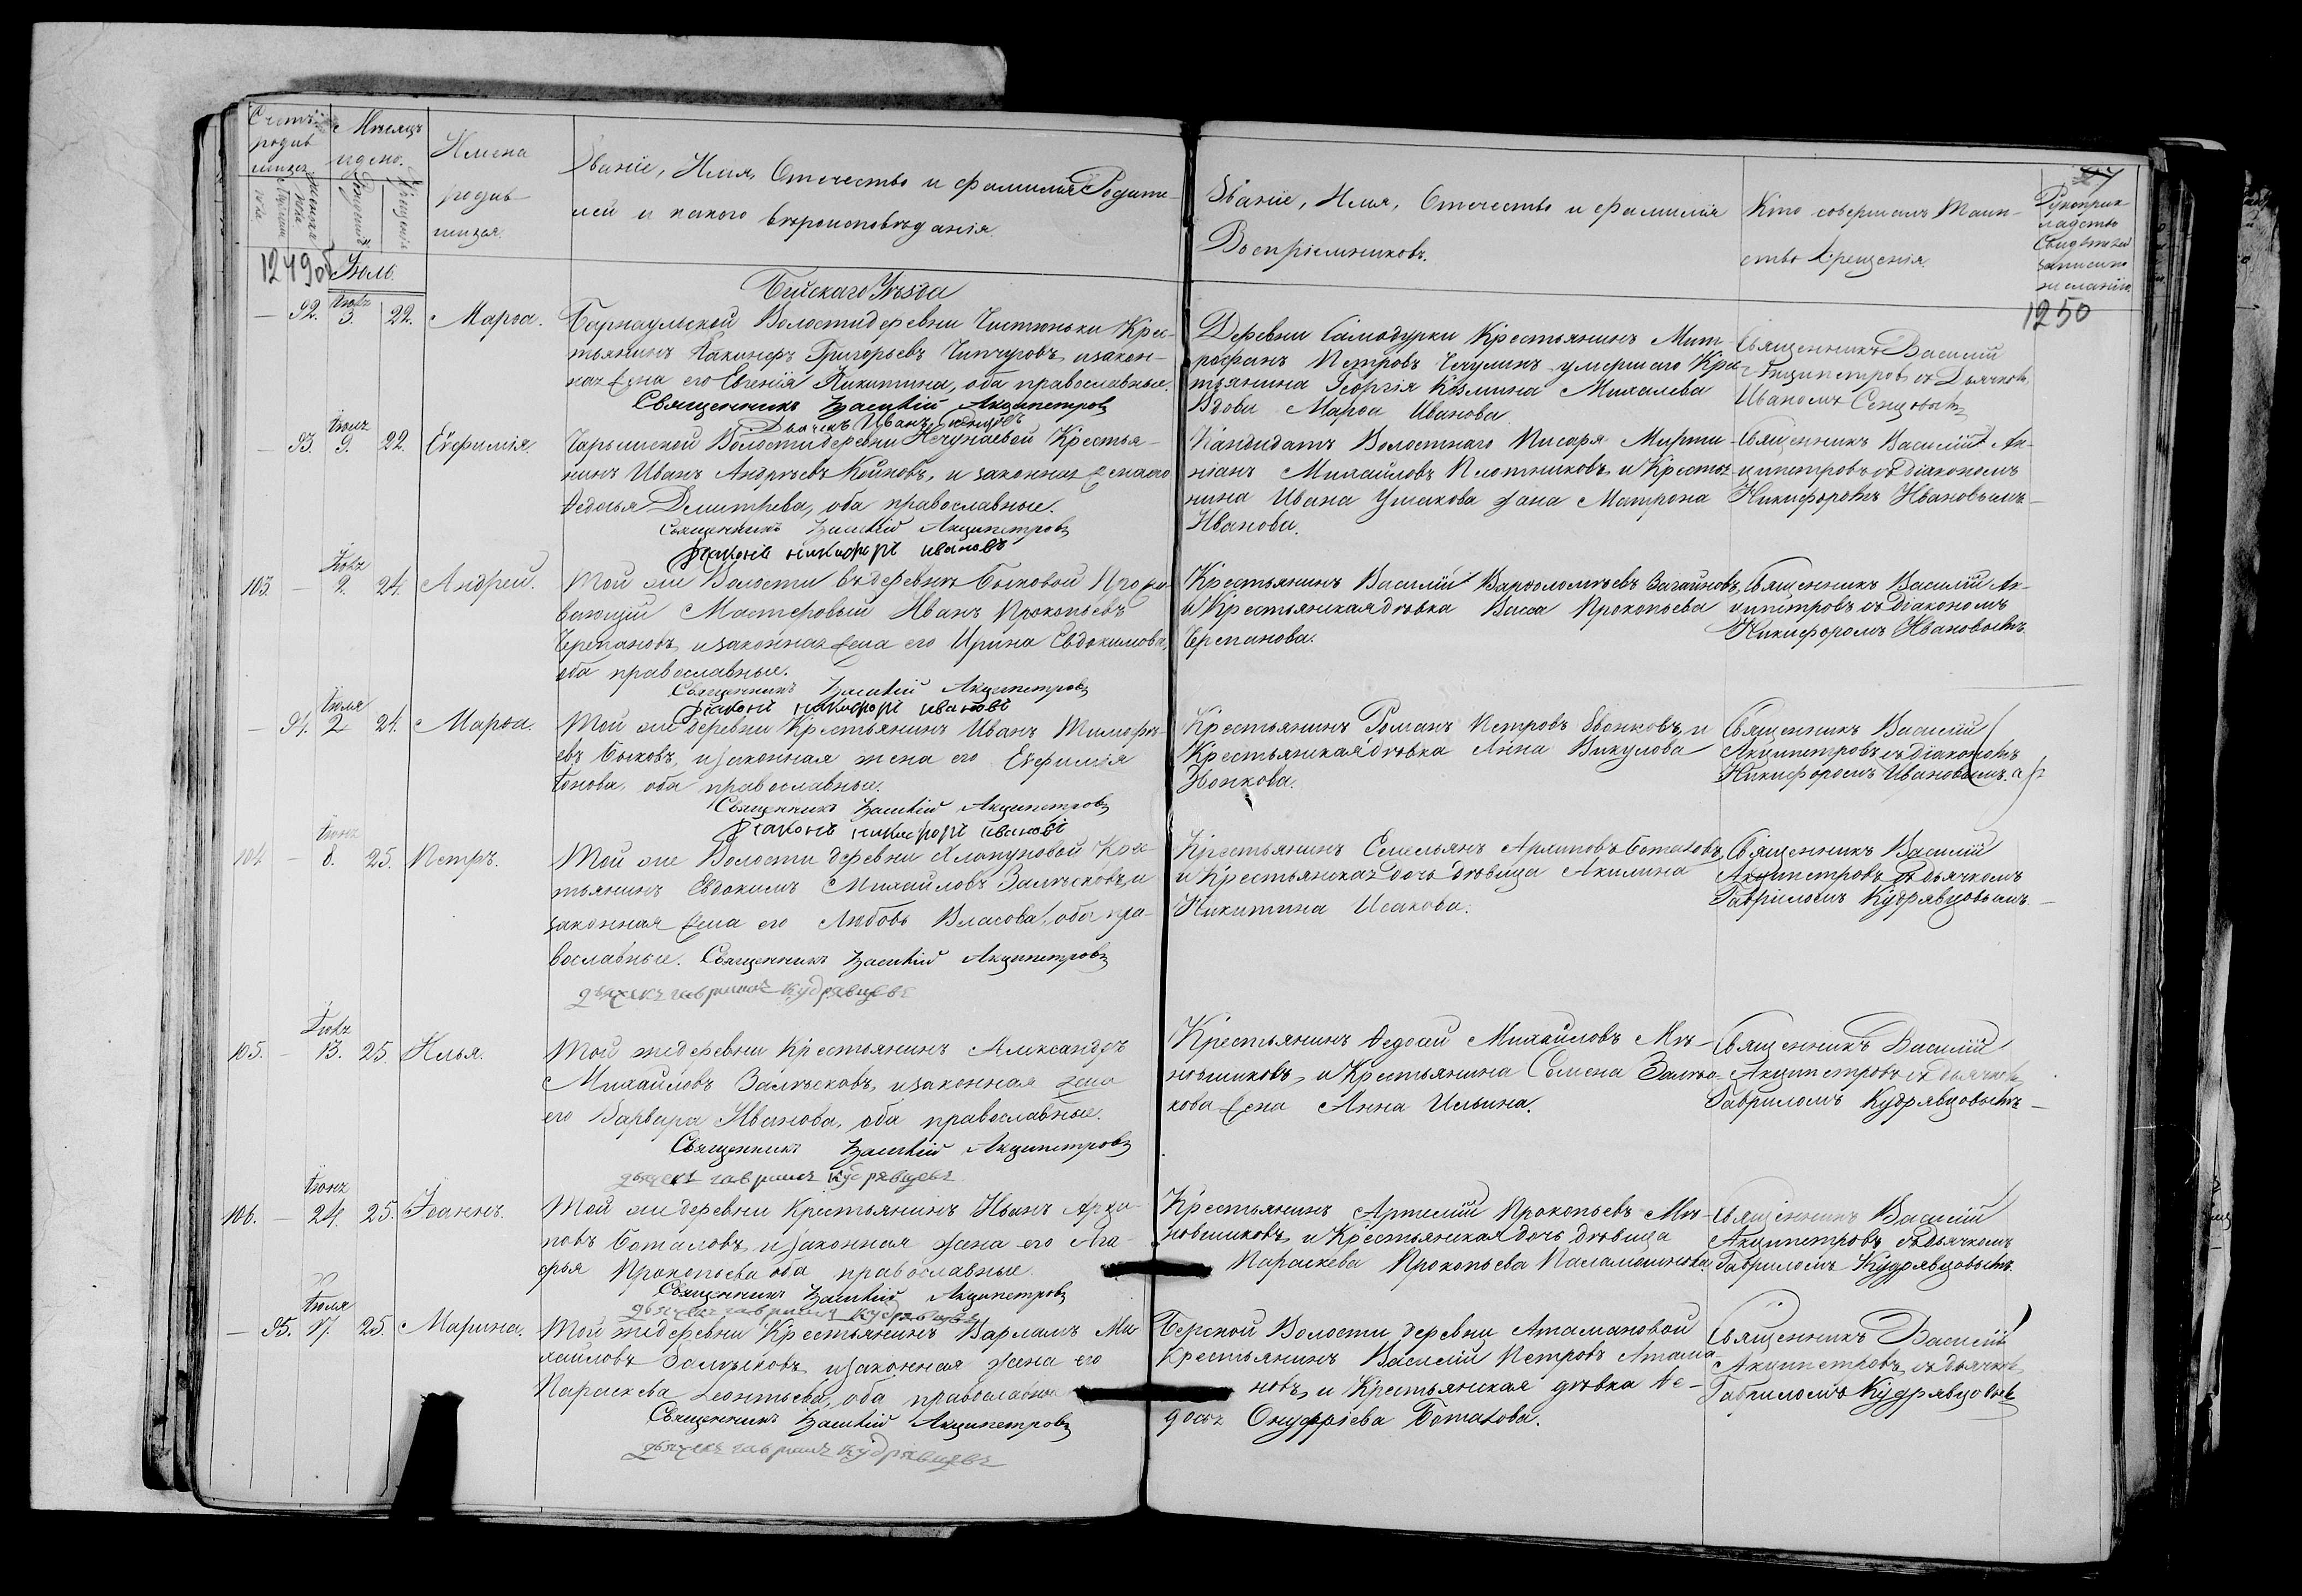 Счетъ родив шихся
Мѣсяцъ и день.
Имена родив шихся.
Званіе, Имя, Отчество и фамилія Родите-
лей и какого вѣроисповѣданія.
Званіе, Имя, Отчество и фамилія
Воспріемниковъ.
Кто совершалъ Таин-
ство Крещенія.
Рукоприк
ладство
Свидѣтелей
записи по
желанію
Мужска пола
Женска пола
Рожденія
Крещенія
1249об
Іюль.
1250
Бійскаго Уѣзда
— 92. Іюля 3. 22. Марѳа.
Барнаульской Волости деревни Чистюньки Крес-
тьянинъ Іакинфъ Григорьевъ Чипчуговъ, и закон-
ная жена его Евгенія Никитина, оба православные.
Священникъ Василій Акципетровъ
Дьячекъ Иванъ Сенцовъ
Деревни Самодурки Крестьянинъ Мит-
рофанъ Петровъ Чекулинъ умершаго Крес-
тьянина Георгія Козмина Михалева
Вдова Марѳа Иванова
Священникъ Василій
Акципетровъ съ Дьячкомъ
Иваномъ Сенцовымъ
— 93. Іюля 9. 22. Евфимія.
Чарышской Волости деревни Нечунаевой Крестья-
нинъ Иванъ Андреевъ Койновъ, и законная жена его
Ѳедосья Димитріева, оба православные.
Священникъ Василій Акципетровъ
Діаконъ Никифоръ Ивановъ
Кандидатъ Волостнаго Писаря Мирти-
ніанъ Михайловъ Плотниковъ и Крестья-
нина Ивана Ушакова жена Матрона
Иванова.
Священникъ Василій Ак-
ципетровъ съ діакономъ
Никифоромъ Ивановымъ —
103. — Іюля 2. 24. Андрей.
Той же Волости въ деревнѣ Быковой Прожи-
вающій Мастеровый Иванъ Прокопьевъ
Черпановъ, и законная жена его Ирина Евдокимова,
оба православные.
Священникъ Василій Акципетровъ
Діаконъ Никифоръ Ивановъ
Крестьянинъ Василій Варѳоломѣевъ Загайновъ,
и Крестьянская дѣвка Васса Прокопьева
Черпанова.
Священникъ Василій Ак-
ципетровъ съ діакономъ
Никифоромъ Ивановымъ
— 94. Іюля 2 24. Марѳа.
Той же деревни Крестьянинъ Иванъ Тимофе-
евъ Быковъ, и законная жена его Евфимія
оба православные.
Священникъ Василій Акципетровъ
Діаконъ Никифоръ Ивановъ
Крестьянинъ Романъ Петровъ и
Крестьянская дѣвка Анна Викулова
Конкова.
Священникъ Василій
Акципетровъ съ діакономъ
Никифоромъ Ивановымъ.
104 — 8. 25. Петръ.
Той же Волости деревни Хлопуновой Крес-
тьянинъ Евдокимъ Михайловъ Залѣсковъ, и
законная жена его Любовь Власова, оба пра-
вославные. Священникъ Василій Акципетровъ
дьячекъ гавриилъ кудрявцевъ
Крестьянинъ Емельянъ Архиповъ Боталовъ,
и Крестьянская дочь дѣвица Акилина
Никитина Исакова.
Священникъ Василій
Акципетровъ съ дьячкомъ
Гавріиломъ Кудрявцовымъ. —
105. — 13. 25. Илья.
Той же деревни Крестьянинъ Александръ
Михайловъ Залѣсковъ, и законная жена
его Варвара Иванова, оба православные.
Священникъ Василій Акципетровъ
дьячекъ гавриилъ кудрявцевъ
Крестьянинъ Ѳедосій Михайловъ Мѣ-
новщиковъ, и Крестьянина Семена Залѣс-
кова жена Анна Ильина.
Священникъ Василій
Акципетровъ съ дьячкомъ
Гавриломъ Кудрявцовымъ —
106. — 24. 25. Іоаннъ.
Той же деревни Крестьянинъ Иванъ Архи-
повъ Боталовъ, и законная жена его Ага-
фья Прокопьева оба православные.
Священникъ Василій Акципетровъ
дьячекъ гавриилъ кудрявцевъ
Крестьянинъ Артемій Прокопьевъ Мѣ-
новщиковъ, и Крестьянская дочь дѣвица
Параскева Прокопьева
Священникъ Василій
Акципетровъ съ дьячкомъ
Гавриломъ Кудрявцовымъ.
— 95. Іюля 17. 25. Марина.
Той же деревни Крестьянинъ Варлаамъ Ми-
хайловъ Залѣсковъ, и законная жена его
Параскева Леонтьева, оба православные
Священникъ Василій Акципетровъ
дьячекъ гавриилъ кудрявцевъ
Берской Волости деревни Атамановой
Крестьянинъ Василій Петровъ Атама-
новъ, и Крестьянская дѣвка Ѳе-
досья Онуфріева Боталова.
Священникъ Василій
Акципетровъ съ дьячкомъ
Гавриломъ Кудрявцовымъ